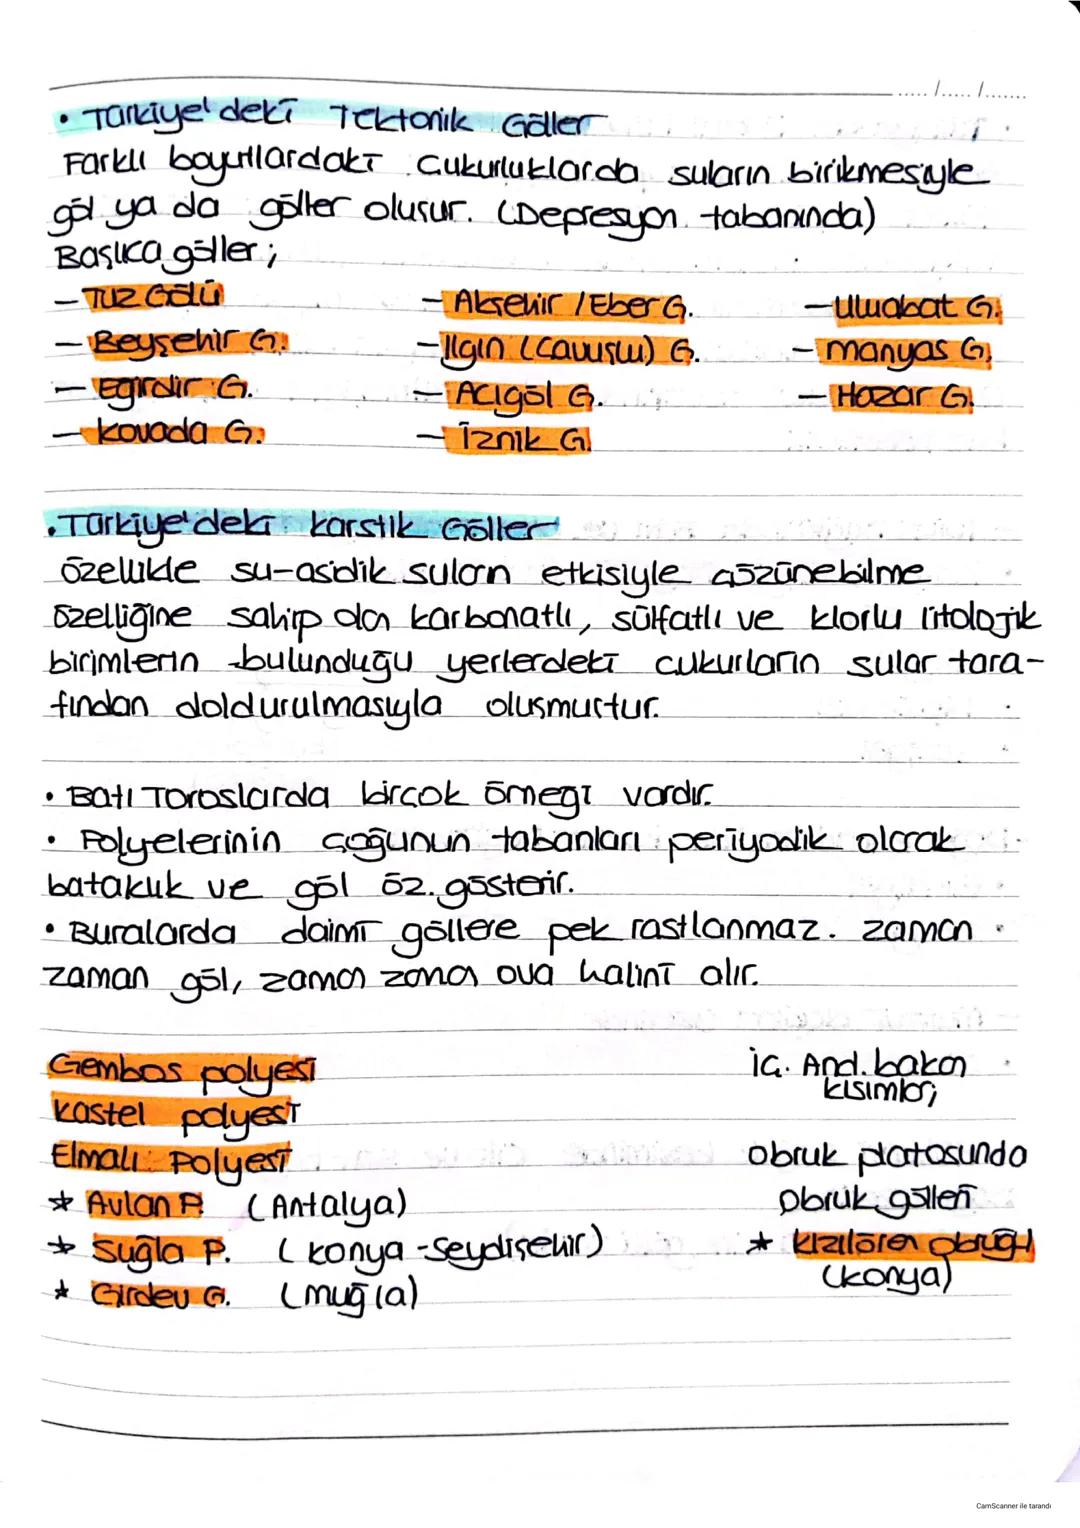 ..... /..... /.......
• Türkiye'deki Tektonik Göller
Farklı boyutlardaki Çukurluklarda suların birikmesiyle
göl ya da göller oluşur. (Depresyon tabanında)
Başlıca göller;
– Tuz Gölü – Akşehir / Eber G. – Uluabat G.
– Beyşehir G. – Ilgın (Çavuşlu) G. – manyas G.
– Eğirdir G. – Acıgöl G. – Hazar G.
– Kovada G. – İznik G.
• Türkiye'deki karstik Göller
özellikle su-asidik suların etkisiyle çözünebilme
özelliğine sahip olan karbonatlı, sülfatlı ve klorlu litolojik
birimlerin bulunduğu yerlerdeki çukurların sular tara-
fından doldurulmasıyla oluşmuştur.
• Batı Toroslarda birçok örneği vardır.
• Polyelerinin çoğunun tabanları periyodik olarak
bataklık ve göl öz. gösterir.
• Buralarda daimi göllere pek rastlanmaz. zaman
zaman göl, zaman zaman ova halini alır.
Gembos polyesi
kastel polyesi
Elmalı Polyesi
* Avlan P. (Antalya)
* Suğla P. (konya-Seydişehir)
* Girdev G. (muğla)
İç. And. bakan
kısımları;
obruk platosunda
obruk gölleri
* kızılören obruğu
(konya)
CamScanner ile tarandı